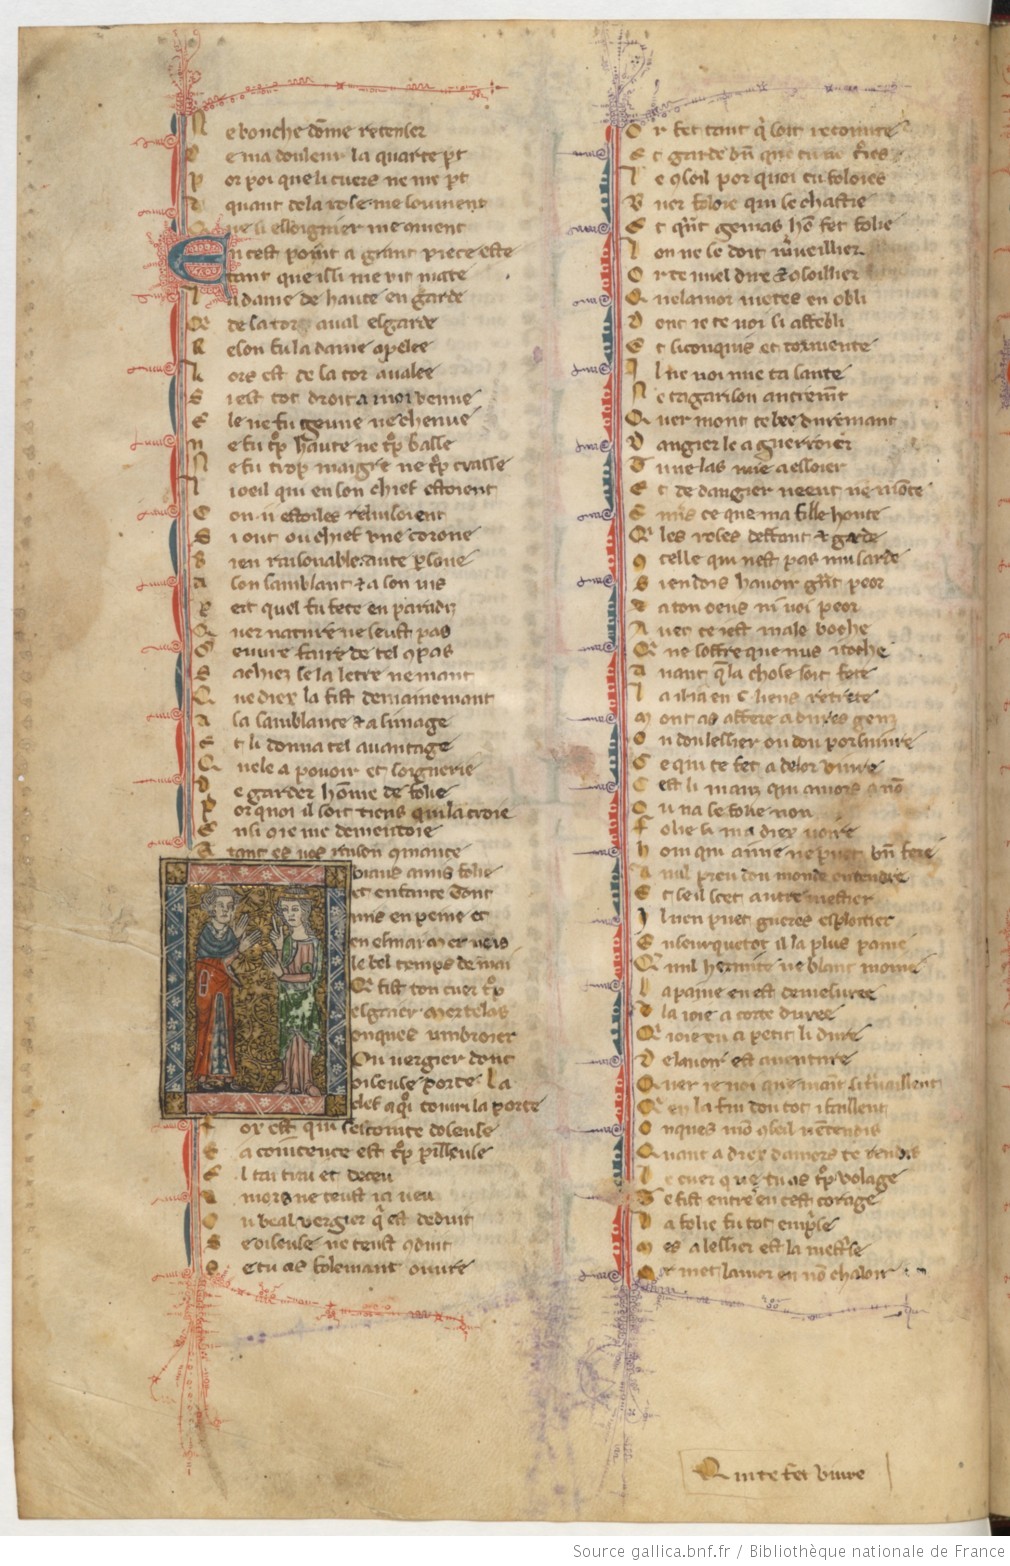 Ne bouche dome retenser
De ma douleur la quarte pt
Por poi que li cuers ne me pt
quant de la rose me souuient
que si eslongnier me couient
En cest point a grant piece este
tant que issi me vit mate
La dame de haute en garde
Qui de sa tor aual esgarde
Reson fu la dame apelee
Lors est de sa tor aualee
Si est tot droit a moi venue
Ele ne fu geune ne chenue
Ne fu trop haute ne trop basse
Ne fu trop maigre ne trop crasse
Li oeil qui en son chief estoient
Con ii estoiles reluisoient
Si out ou chief vne corone
Bien resembloit haute persone
A son samblant et a son vis
Pert quel fu fete en paradiz
Quer nature ne seust pas
Oeuure faire de tel compas
Sachiez se la letre ne mant
Que diex la fist demainemant
A sa samblance et a simage
Et li donna tel auantage
Quele a pouoir et soignerie
De garder homme de folie
Por quoi il soit tiens qui la croie
Ensi o ie me dementoie
Atant es vos reson qmance
biaus amis folie
et enfance tont
mis en peine et
en esmai mar veis
le bel temps de mai
Qi fist ton cuer trop
esgaier mar telas
onques umbroier
Ou vergier dont
oiseuse porte la
clef a qoi touri la porte
For est qui sescointe doiseuse
Sa cointence est trop perilleuse
El tai trai et deceu
Amors ne teust ia veu
Ou beal vergier qi est deduit
Se oiseuse ne teust conduit
Se tu as folemant ouure
Or fet tant qi soit recouure
Et garde bn que tu ne
Le qsoil por quoi tu foloies
Buer foloie qui se chastie
Et qnt geunes home fet folie
Lon ne se doit merueillier
Or te vuel dire et qsoillier
Que lamor metes en obli
Dont ie te voi si affebli
Et si conquis et tormente
Il ne voi mie ta sante
Ne ta garison autremt
Quer mont te bee durement
Dangier le a guerroier
Tu ne las mie a essoier
Et de dangier neent ne monte
Enuers ce que ma fille honte
Qi les roses deffent et garde
Com celle qui nest pas musarde
Si en dois hauoir gnt peor
A ton oeus ni voi peor
Auec ce est male boche
Qi ne soffre que nus i toche
Auant que la chose soit fete
La il ia en c liens retrete
Mont as affere a dures genz
Or dou lessier ou dou porsuiure
Ce qui te fet a delor viure
Cest li maux qui amors a non
Ou na se folie non
Folie si ma diex voire
Hom qui aime ne puet bn fere
A nul preu dou monde entendre
Et seil scet autre mestier
Il nen puet gueres esploitier
Enseurquetot il a plus paine
Que nuil hermite ne blanc moine
La paine en est demesuree
Et la ioie a corte duree
Qi ioie en a petit li dure
De lauoir est auenture
Quer ie voi que maint sitrauaillent
Qi en la fin dou tot i faillent
Onques mon qseil nentendis
Quant a dieu damers te rendis
Le cuer que tu as trop volage
Te fist entrer en cest corage
La folie fu tot emprise
Mes a lessier est la mestrise
Or met lamor en non chaloir
Qui te fet viure
Source gallica.bnf.fr / Bibliothèque nationale de France